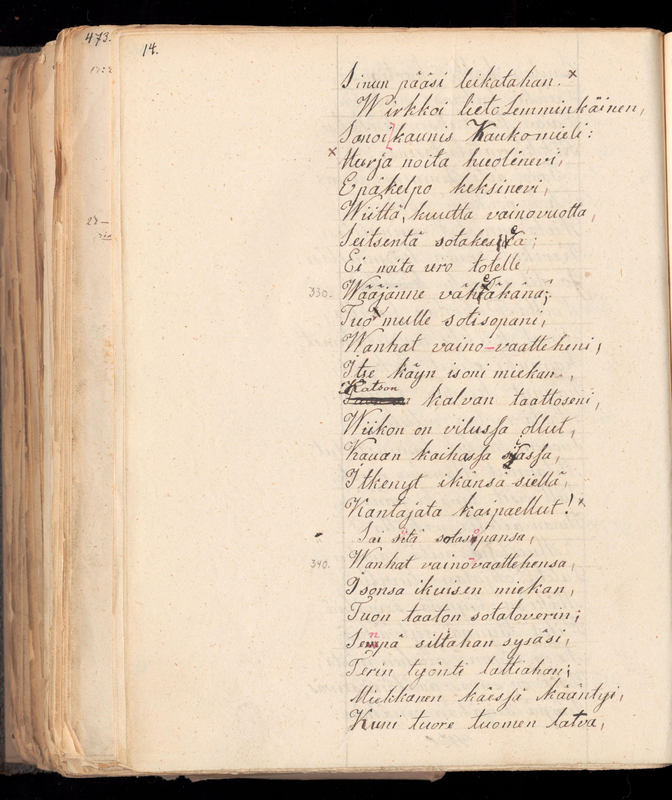 473.
14.
Sinun pääsi leikatahan. x
Wirkkoi lieto Lemminkäinen,
Sanoi kaunis Kaukomieli:
x Hurja noita huolinevi,
Epäkelpo keksinevi,
Wiittä, kuutta vainovuotta,
Seitsentä
Ei noita uro totelle
330. Wääjänne
Tuo mulle sotisopani,
Wanhat vaino-vaatteheni;
Itse käyn isoni miekan,
Katson kalvan taattoseni,
Wiikon on vilussa ollut,
Kauan kaihassa sijassa,
Itkenyt ikänsä siellä,
Kantajata kaipaellut! x
Sai sotasopansa,
340. Wanhat vaino-vaattehensa,
Isonsa ikuisen miekan,
Tuon taaton sotatoverin;
Senpä siltahan sysäsi,
Terin työnti lattiahan;
Miekkanen käessä kääntyi,
Kuni tuore tuomen latva,